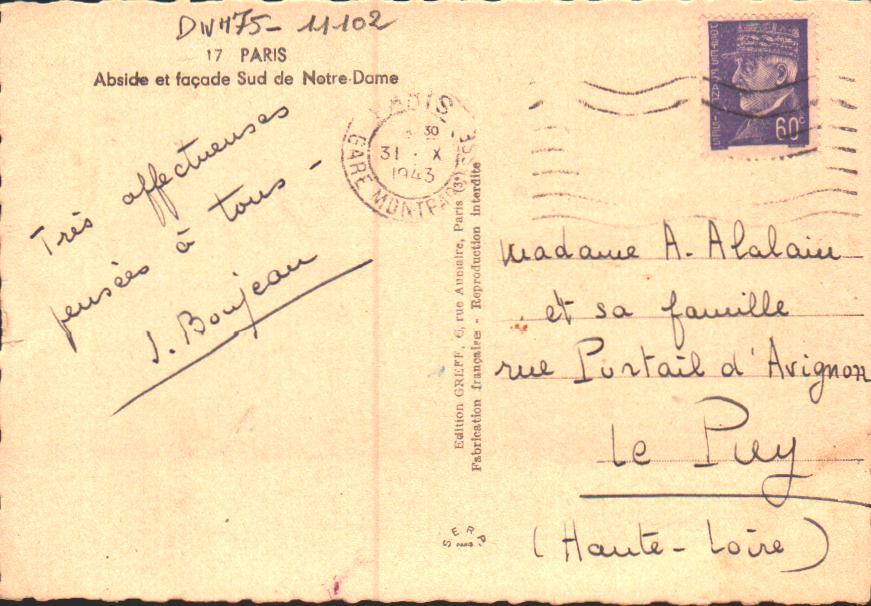 DW475- 11-102
17 PARIS
Abside et façade Sud de Notre-Dame
Très affectueuses
pensées à tous -
J. Boujeau
PARIS
30
31 . X
1943
GARE MONTPARNASSE
60c
Edition GREFF, 6, rue Aumaire, Paris (3e)
Fabrication française - Reproduction interdite
Madame A. Alalain
et sa famille
rue Portail d'Avignon
le Puy
(Haute-Loire)
SERP
PARIS